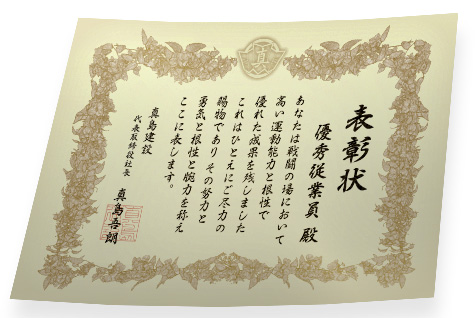 表彰状
優秀従業員 殿
あなたは戦闘の場において
高い運動能力と根性で
優れた成果を残しました
これはひとえにご尽力の
賜物であり その努力と
勇気と根性と腕力を称え
ここに表します。
真島建設
代表取締役社長
真島吾朗